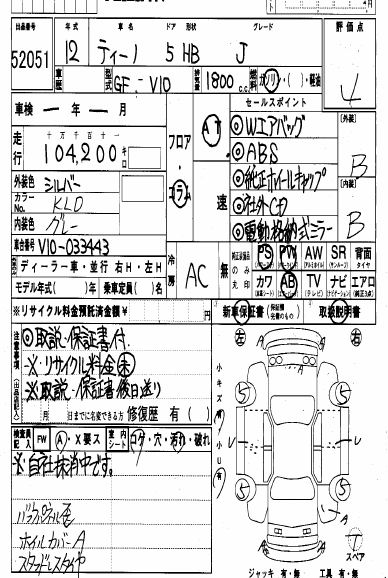 出品番号 年式 車名 ドア 形状 グレード 評価点
52051 12 ティーノ 5 HB J 4
車歴 型式 GF-V10 排気量 1800 c.c. 燃料 ガソリン・( )・軽油
車検 ー年ー月
セールスポイント
走行 十万千百十一 104,200 キロ
フロア・コラム AT 速
◎Wエアバッグ
◎ABS
◎純正ホイールキャップ
◎社外CD
◎電動格納式ミラー
[外装] B
[内装] B
外装色 シルバー
カラーNo. KL0
内装色 グレー
車台番号 V10-033443
冷房 AC 無
純正装備品のみ丸印 PS PW AW SR 背面タイヤ
カワ AB TV ナビ エアロ
ディーラー車・並行 右H・左H
モデル年式( )年 乗車定員( )名
※リサイクル料金預託済金額¥ 円
新車保証書 取扱説明書
注意事項
◎取説・保証書付
※リサイクル料金未
※取説・保証書後日送り
月 日までに名変できる方 修復歴 有( )
検査員記入 FW A・X要ス 室内シート コゲ・穴・汚れ・破れ
※自社抹消中です。
バックパネル
ホイルカバーA
スタッドレスタイヤ
左 右
小キズ有 小U有
5 5
U U
5 5
A A
スペア
ジャッキ 有・無 工具 有・無